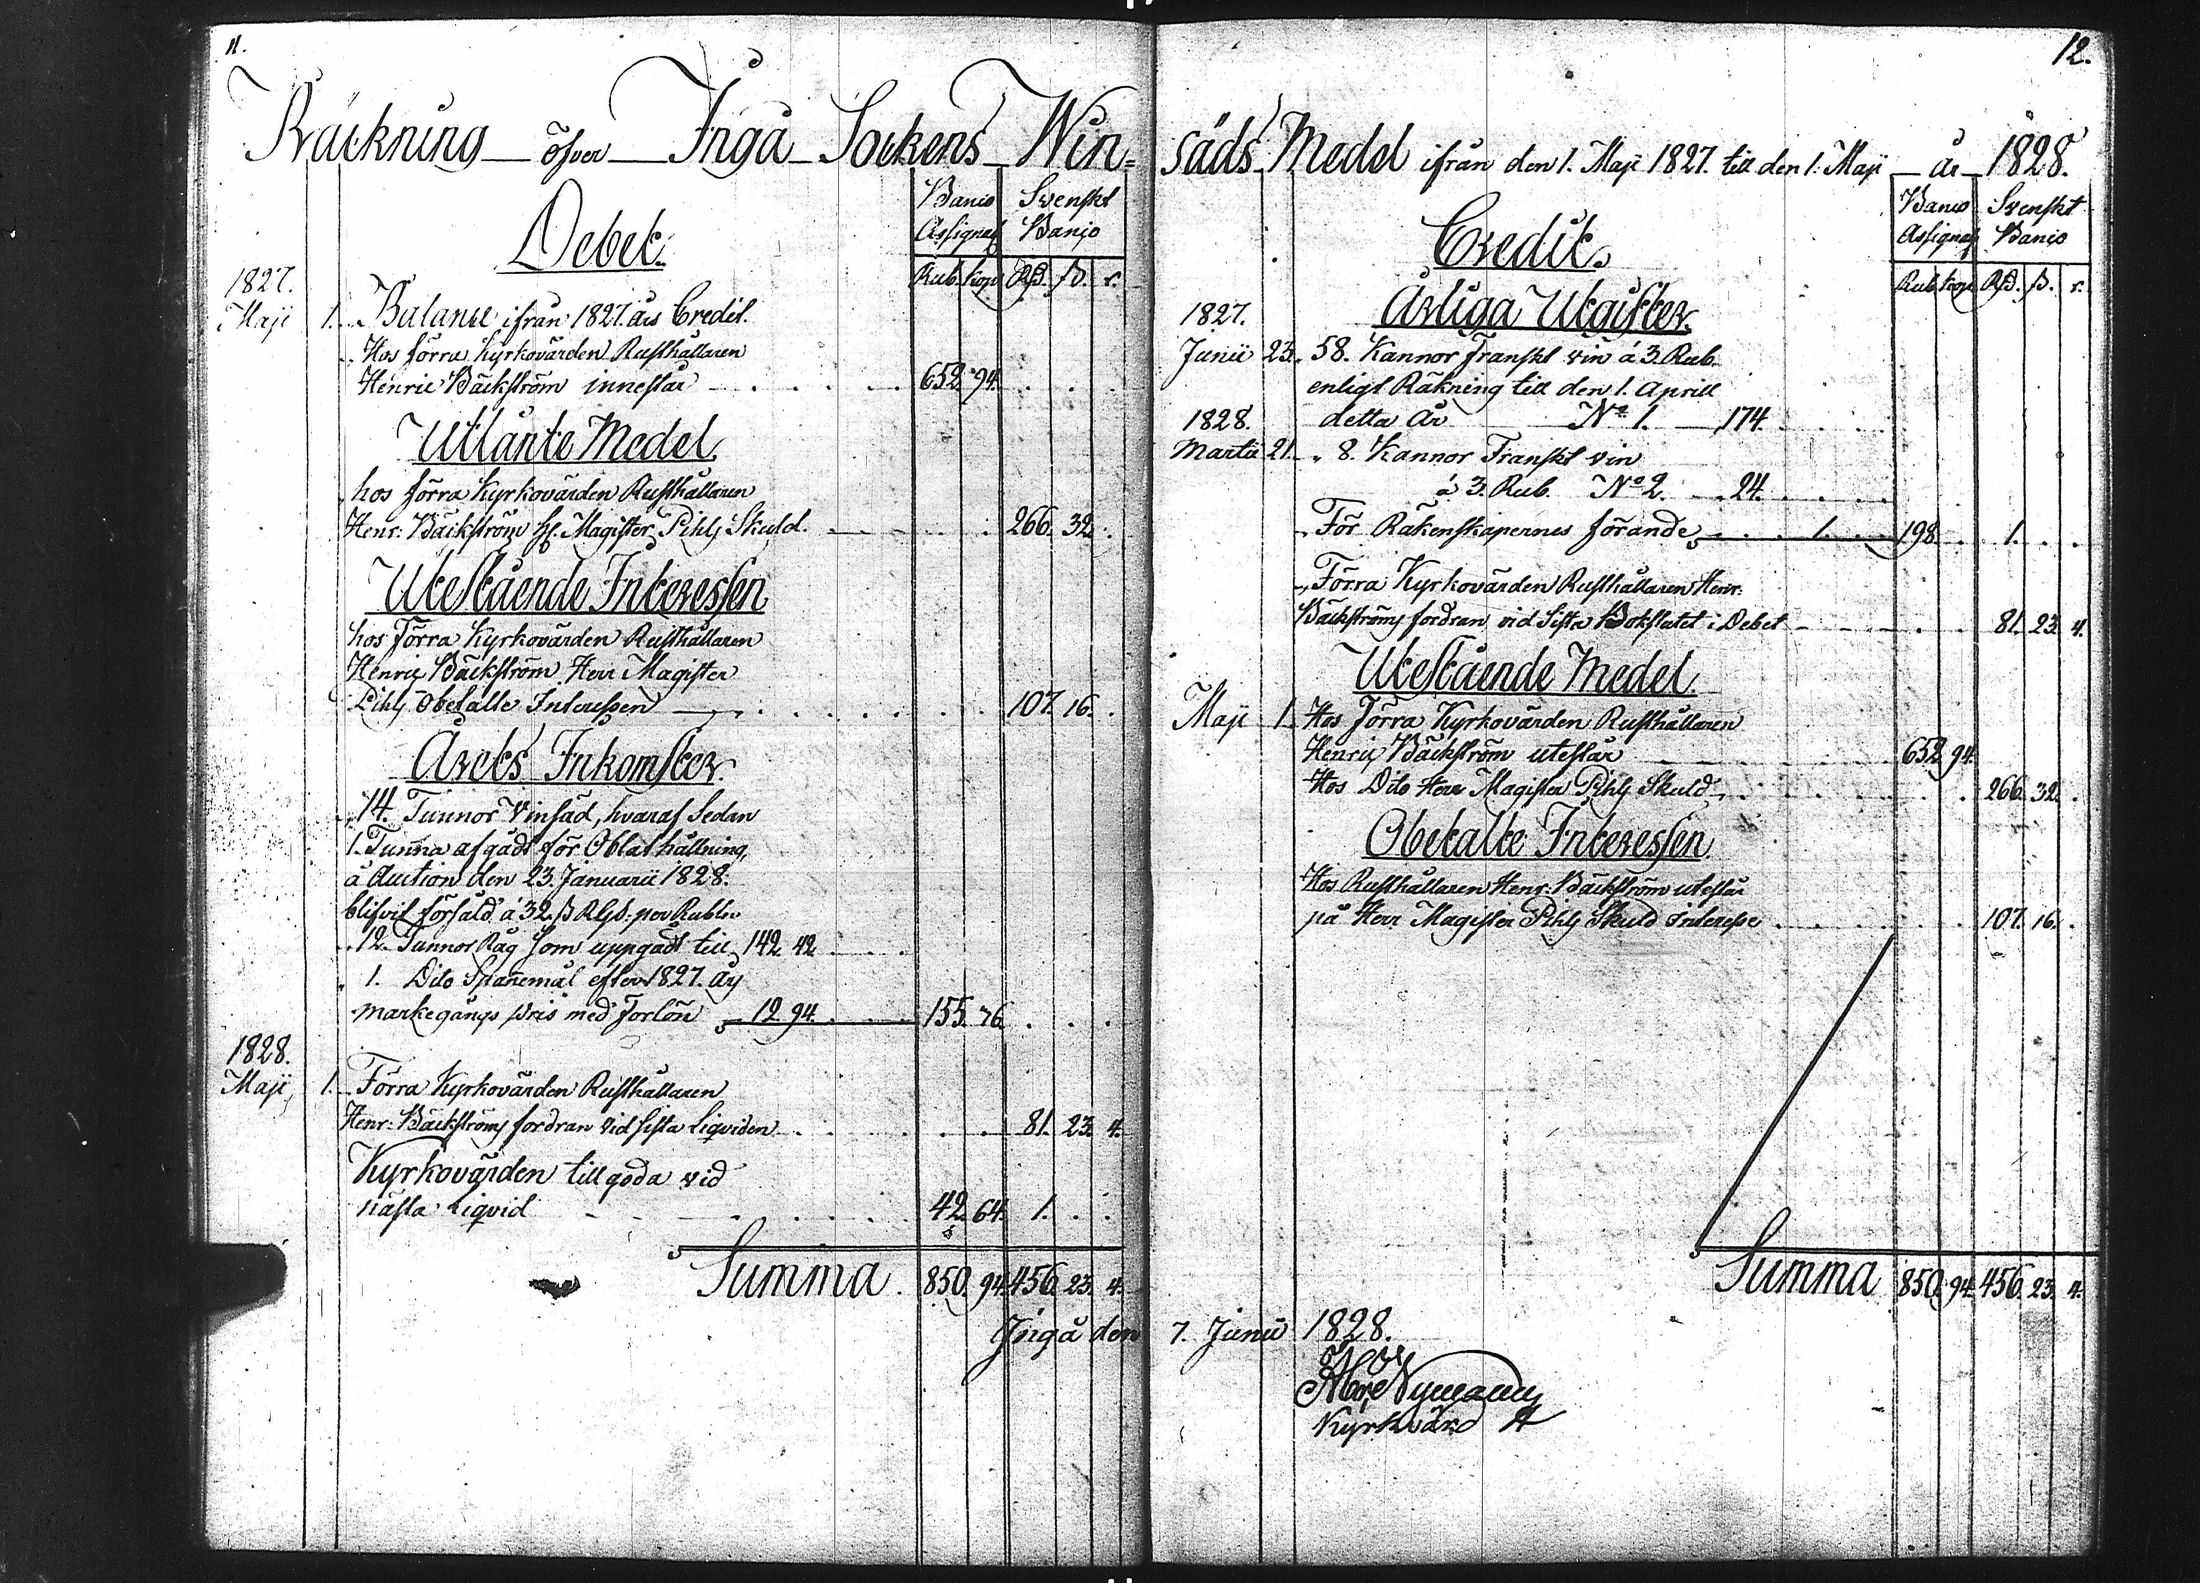 11.
Räckning öfver Ingå Sockens Win=
Debet.
Banco Svenskt
Assignat Banco
Rub. kop Rß. ß. r.
1827.
Maji 1. Balance ifrån 1827 års Credit.
Hos förra Kyrkovärden Rusthållaren
Henric Bäckström innestår 652. 94.
Utlånte Medel
hos förra Kyrkovärden Rusthållaren
Henr: Bäckström Hr. Magister Pihls Skuld. 266. 32.
Utestående Interessen
hos Förra Kyrkovärden Rusthållaren
Henric Bäckström Herr Magister
Pihls Obetalte Interessen 107. 16.
Årets Inkomster.
14. Tunnor Vinsäd, hvaraf Sedan
1. Tunna afgådt för Oblathållning,
å Auction den 23. Januarii 1828.
blifvit försåld à 32 ß Rgs. per Rubler
12. Tunnor Råg som uppgådt till 142. 42
1. Dito Spanemål efter 1827. års
markegångs pris med Forlön 12. 94. 155. 76.
1828.
Maji 1. Förra Kyrkovärden Rusthållaren
Henr: Bäckströms fordran vid sista Liqviden 81. 23. 4.
Kyrkovärden tillgoda vid
nästa Liqvid 42. 64. 1.
Summa 850. 94. 456. 23. 4.
Ingå den
12.
säds Medel ifrån den 1. Maji 1827. till den 1. Maji år 1828.
Credit.
Banco Svenskt
Assignat Banco
Rub kop Rß. ß. r.
Årliga Utgifter.
1827.
Junii 23. 58. Kannor Franskt vin á 3. Rub.
enligt Räkning till den 1. Aprill
1828. detta År No 1. 174.
Martii 21. 8. Kannor Franskt vin
á 3. Rub. No 2. 24.
För Räkenskapernes förande 1. 198. 1.
Förra Kyrkovärden Rusthållaren Henr:
Bäckströms fordran vid sista Bokslutet i Debet 81. 23. 4.
Utestående Medel.
Maji 1. Hos Förra Kyrkovärden Rusthållaren
Henric Bäckström utestår 652. 94.
Hos Dito Herr Magister Pihls Skuld 266. 32.
Obetalte Interessen
Hos Rusthållaren Henr: Bäckström utestår
på Herr Magister Pihls Skuld Interesse 107. 16.
Summa 850. 94. 456. 23. 4.
7. Junii 1828.
Nyman
Kyrkvärd